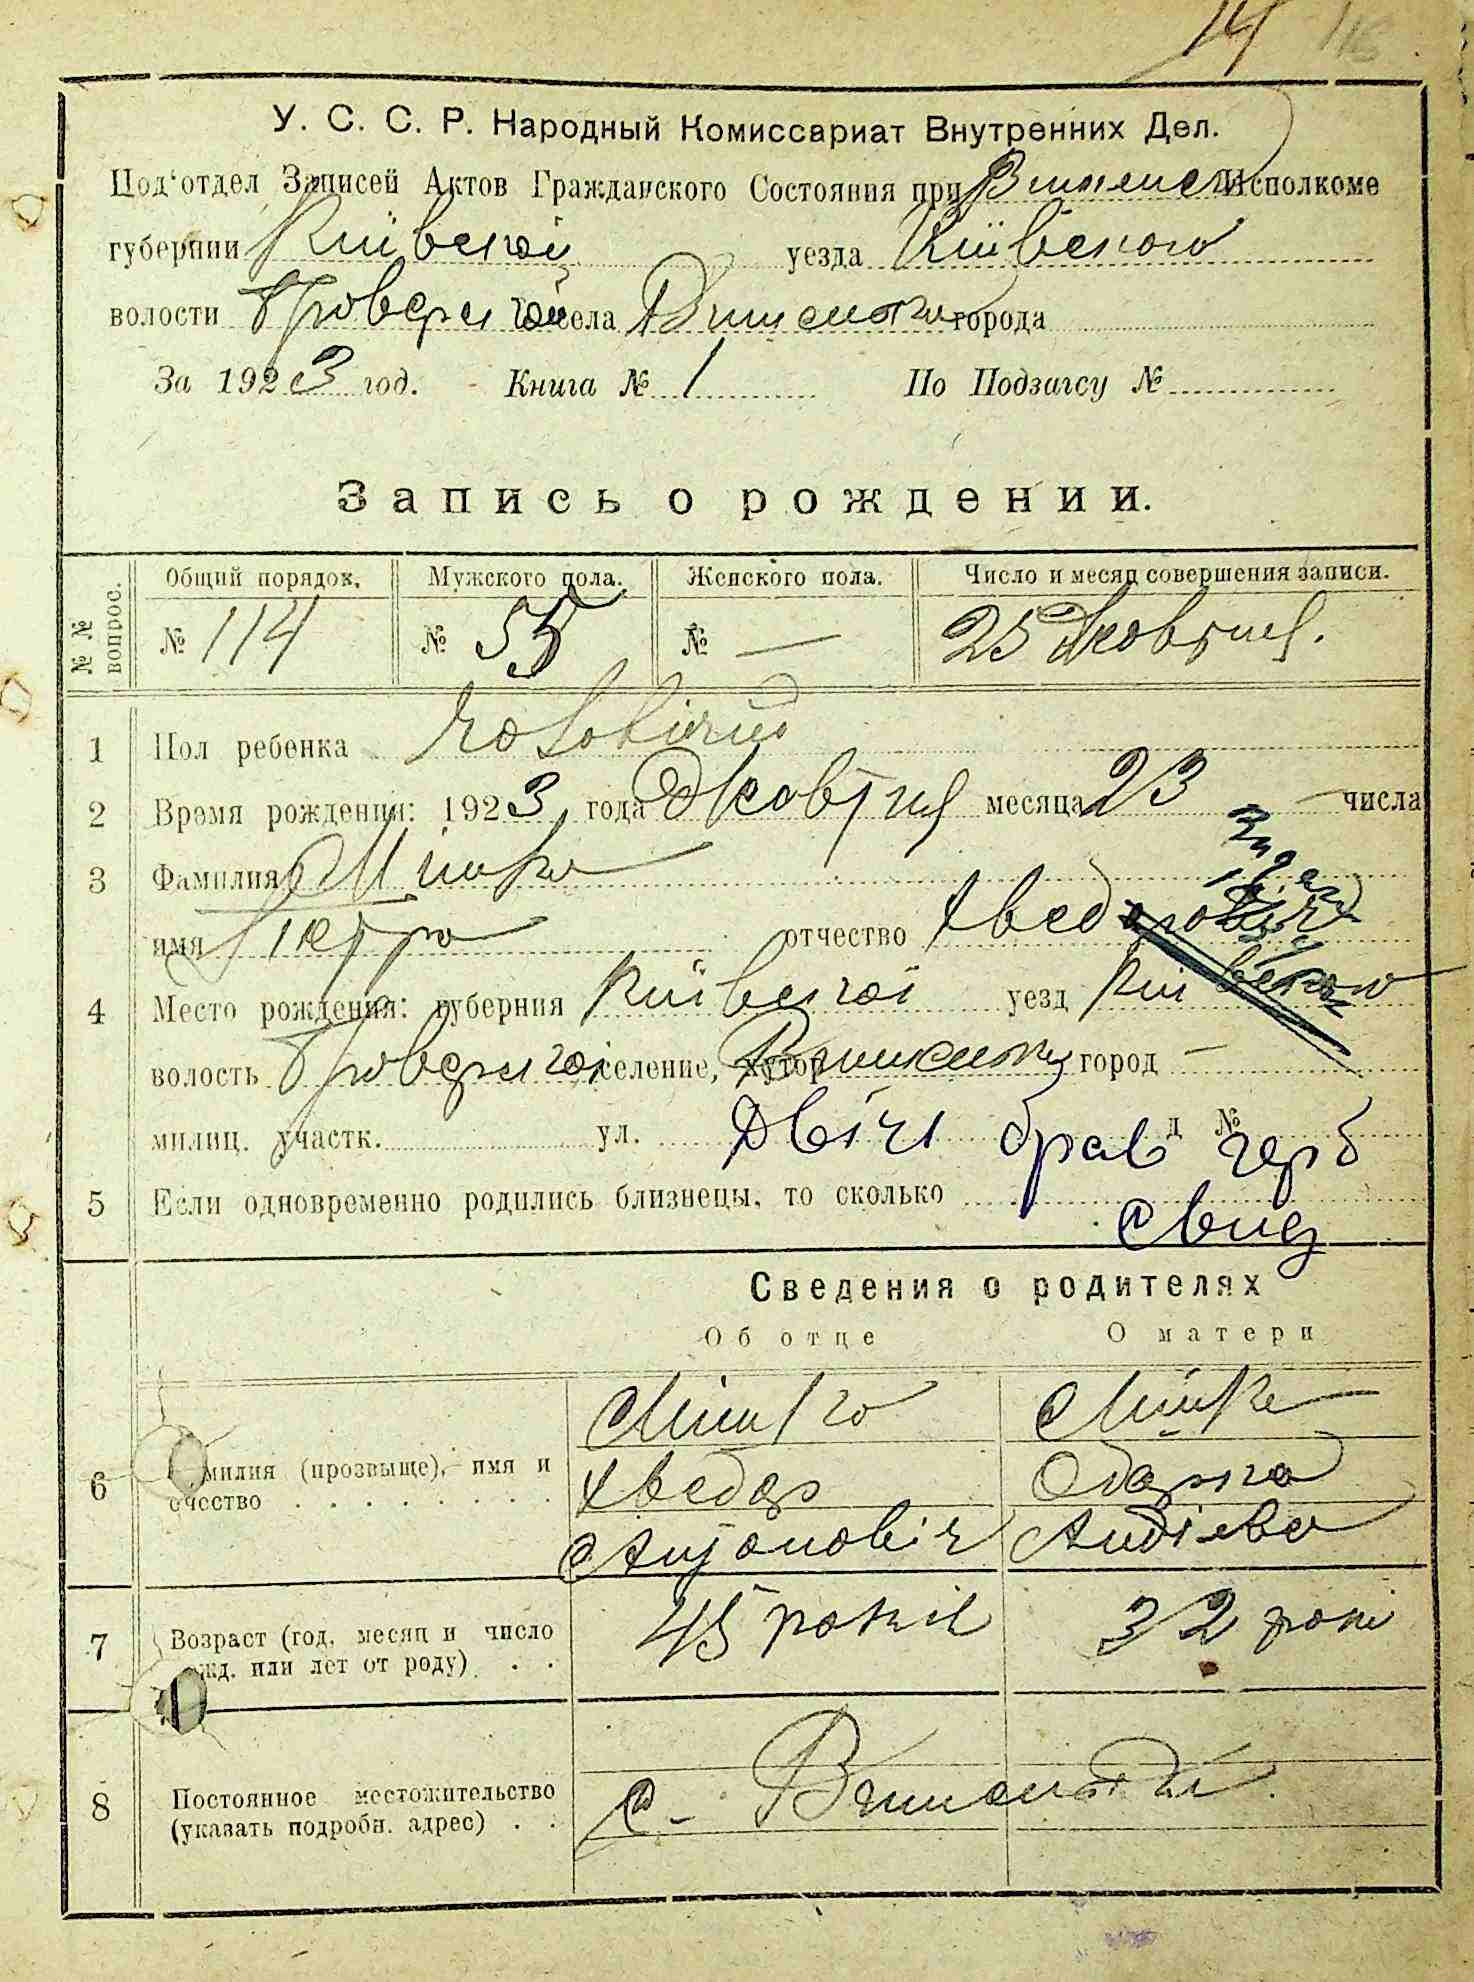 14
У. С. С. Р. Народный Комиссариат Внутренних Дел.
Под'отдел Записей Актов Гражданского Состояния при Исполкоме
губернии Київскоі уезда Київского
волости села города
За 1923 год. Книга № 1 По Подзагсу №
Запись о рождении.
№ № вопрос. Общий порядок. Мужского пола. Женского пола. Число и месяц совершения записи.
№ 114 № 55 № — 25 Жовтня.
1 Пол ребенка
2 Время рождения: 1923 года Жовтня месяца 23 числа
3 Фамилия Мішко
имя Петро отчество Хведорович
4 Место рождения: губерния Київскоі уезд Київского
волость селение, хутор город —
милиц. участк. ул. д №
Двічі брав герб
5 Если одновременно родились близнецы, то сколько
свид
Сведения о родителях
Об отце О матери
Мішко Мішко
6 милия (прозвыще), имя и Хведор Одарка
чество Антонович Андієва
7 Возраст (год, месяц и число 45 років 32 роки
жд. или лет от роду)
8 Постоянное местожительство
(указать подробн. адрес) с.